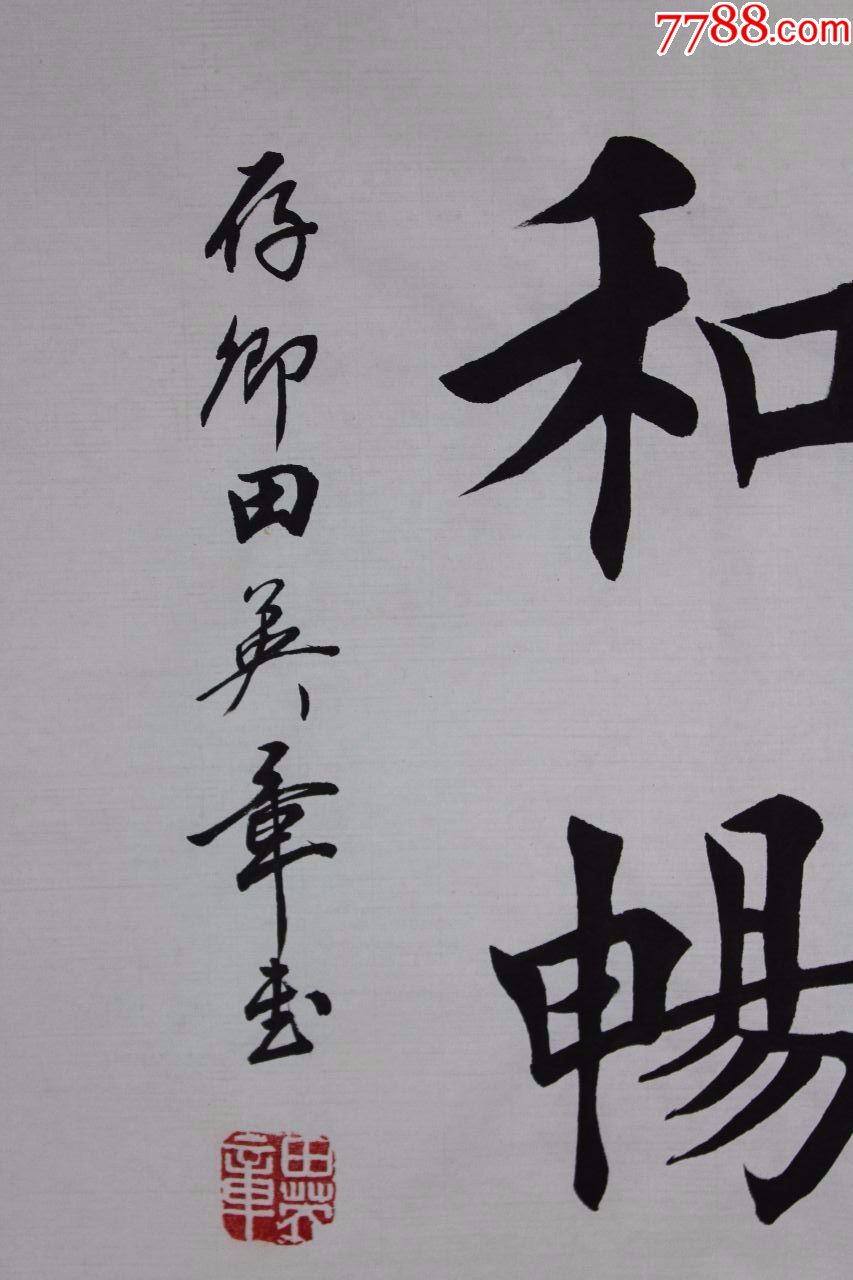 7788.com
和暢
存卿田英章書
田英章